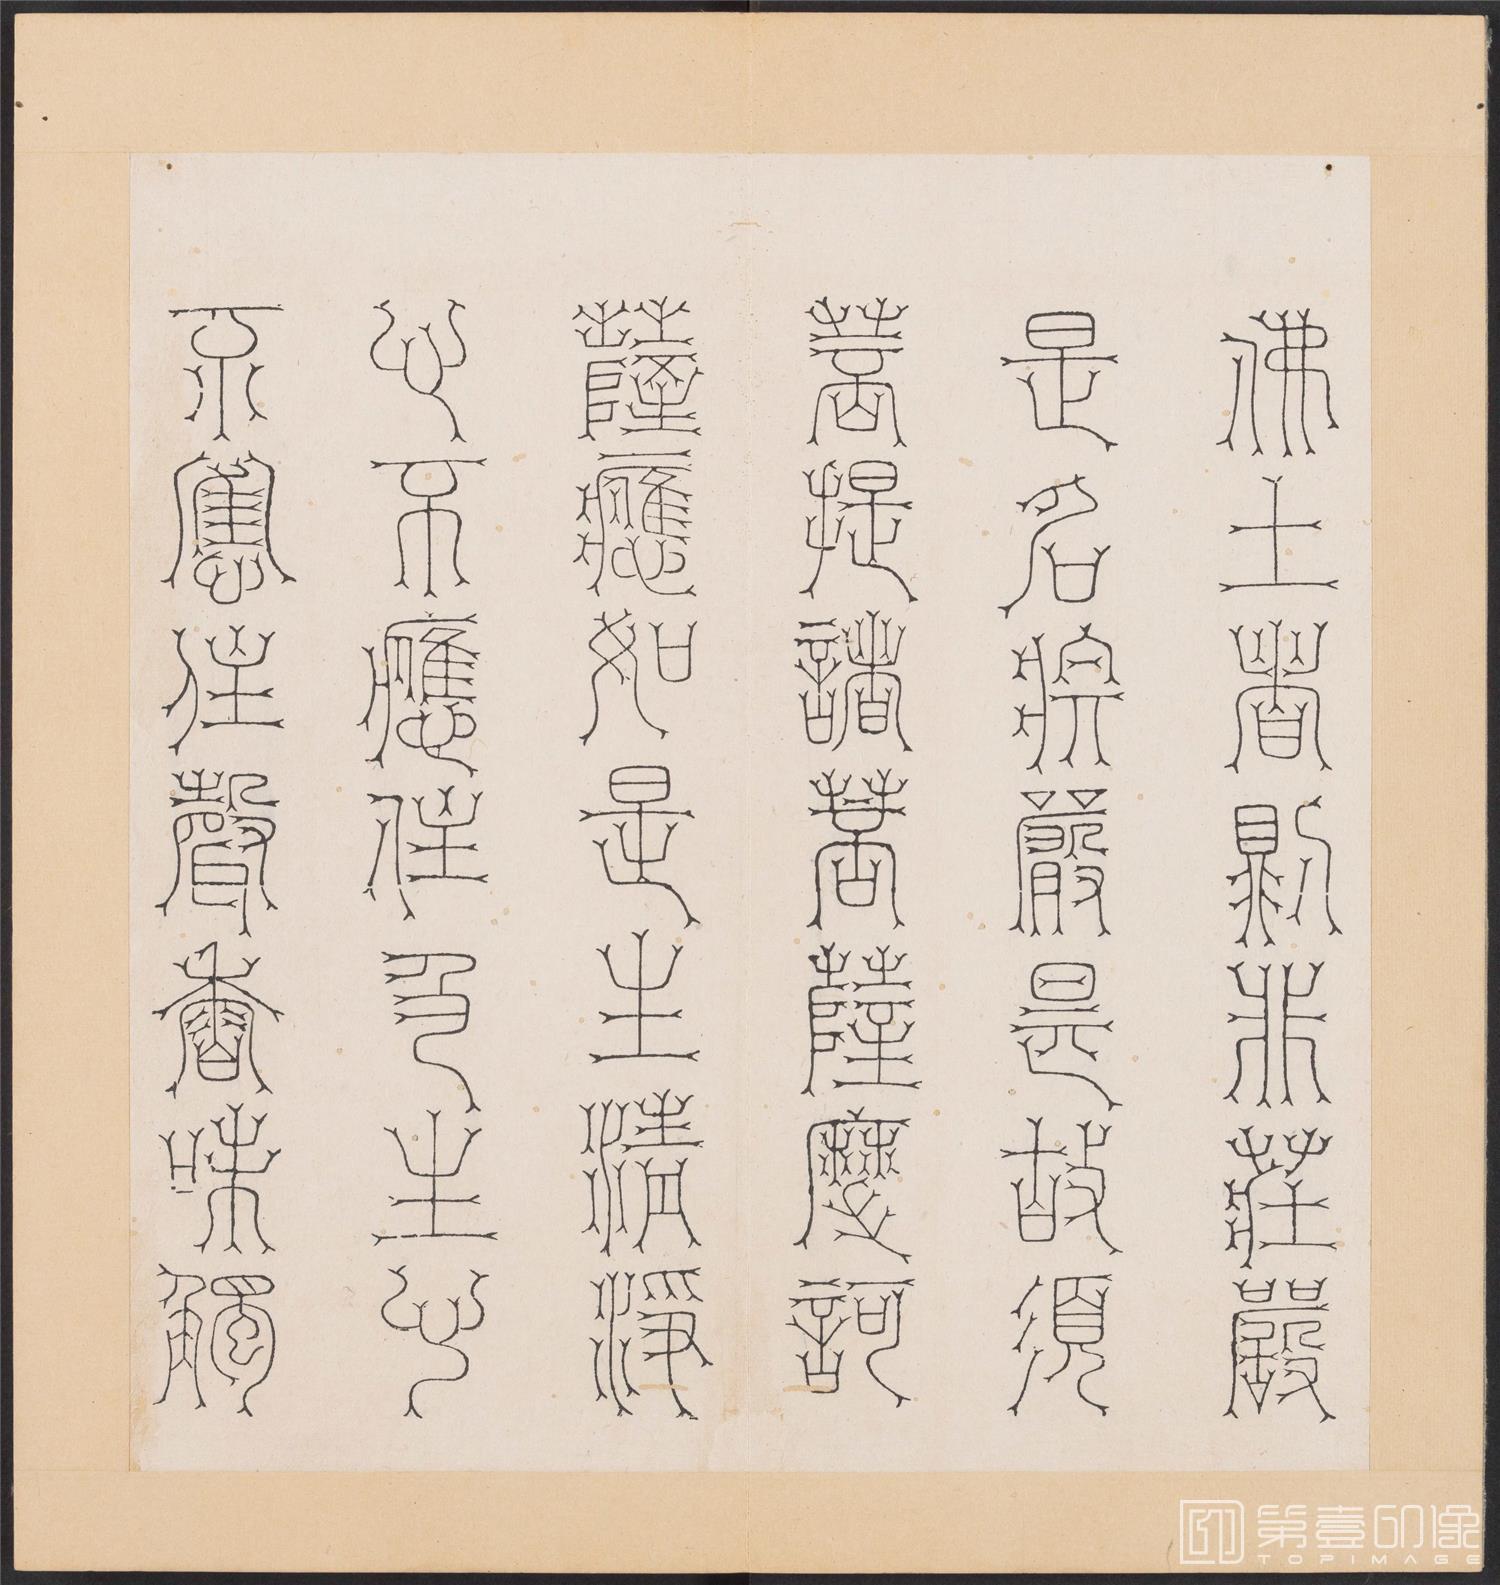 佛土者則非莊嚴
是名莊嚴是故須
菩提諸菩薩摩訶
薩應如是生清淨
心不應住色生心
不應住聲香味觸
第壹印像
TOPIMAGE